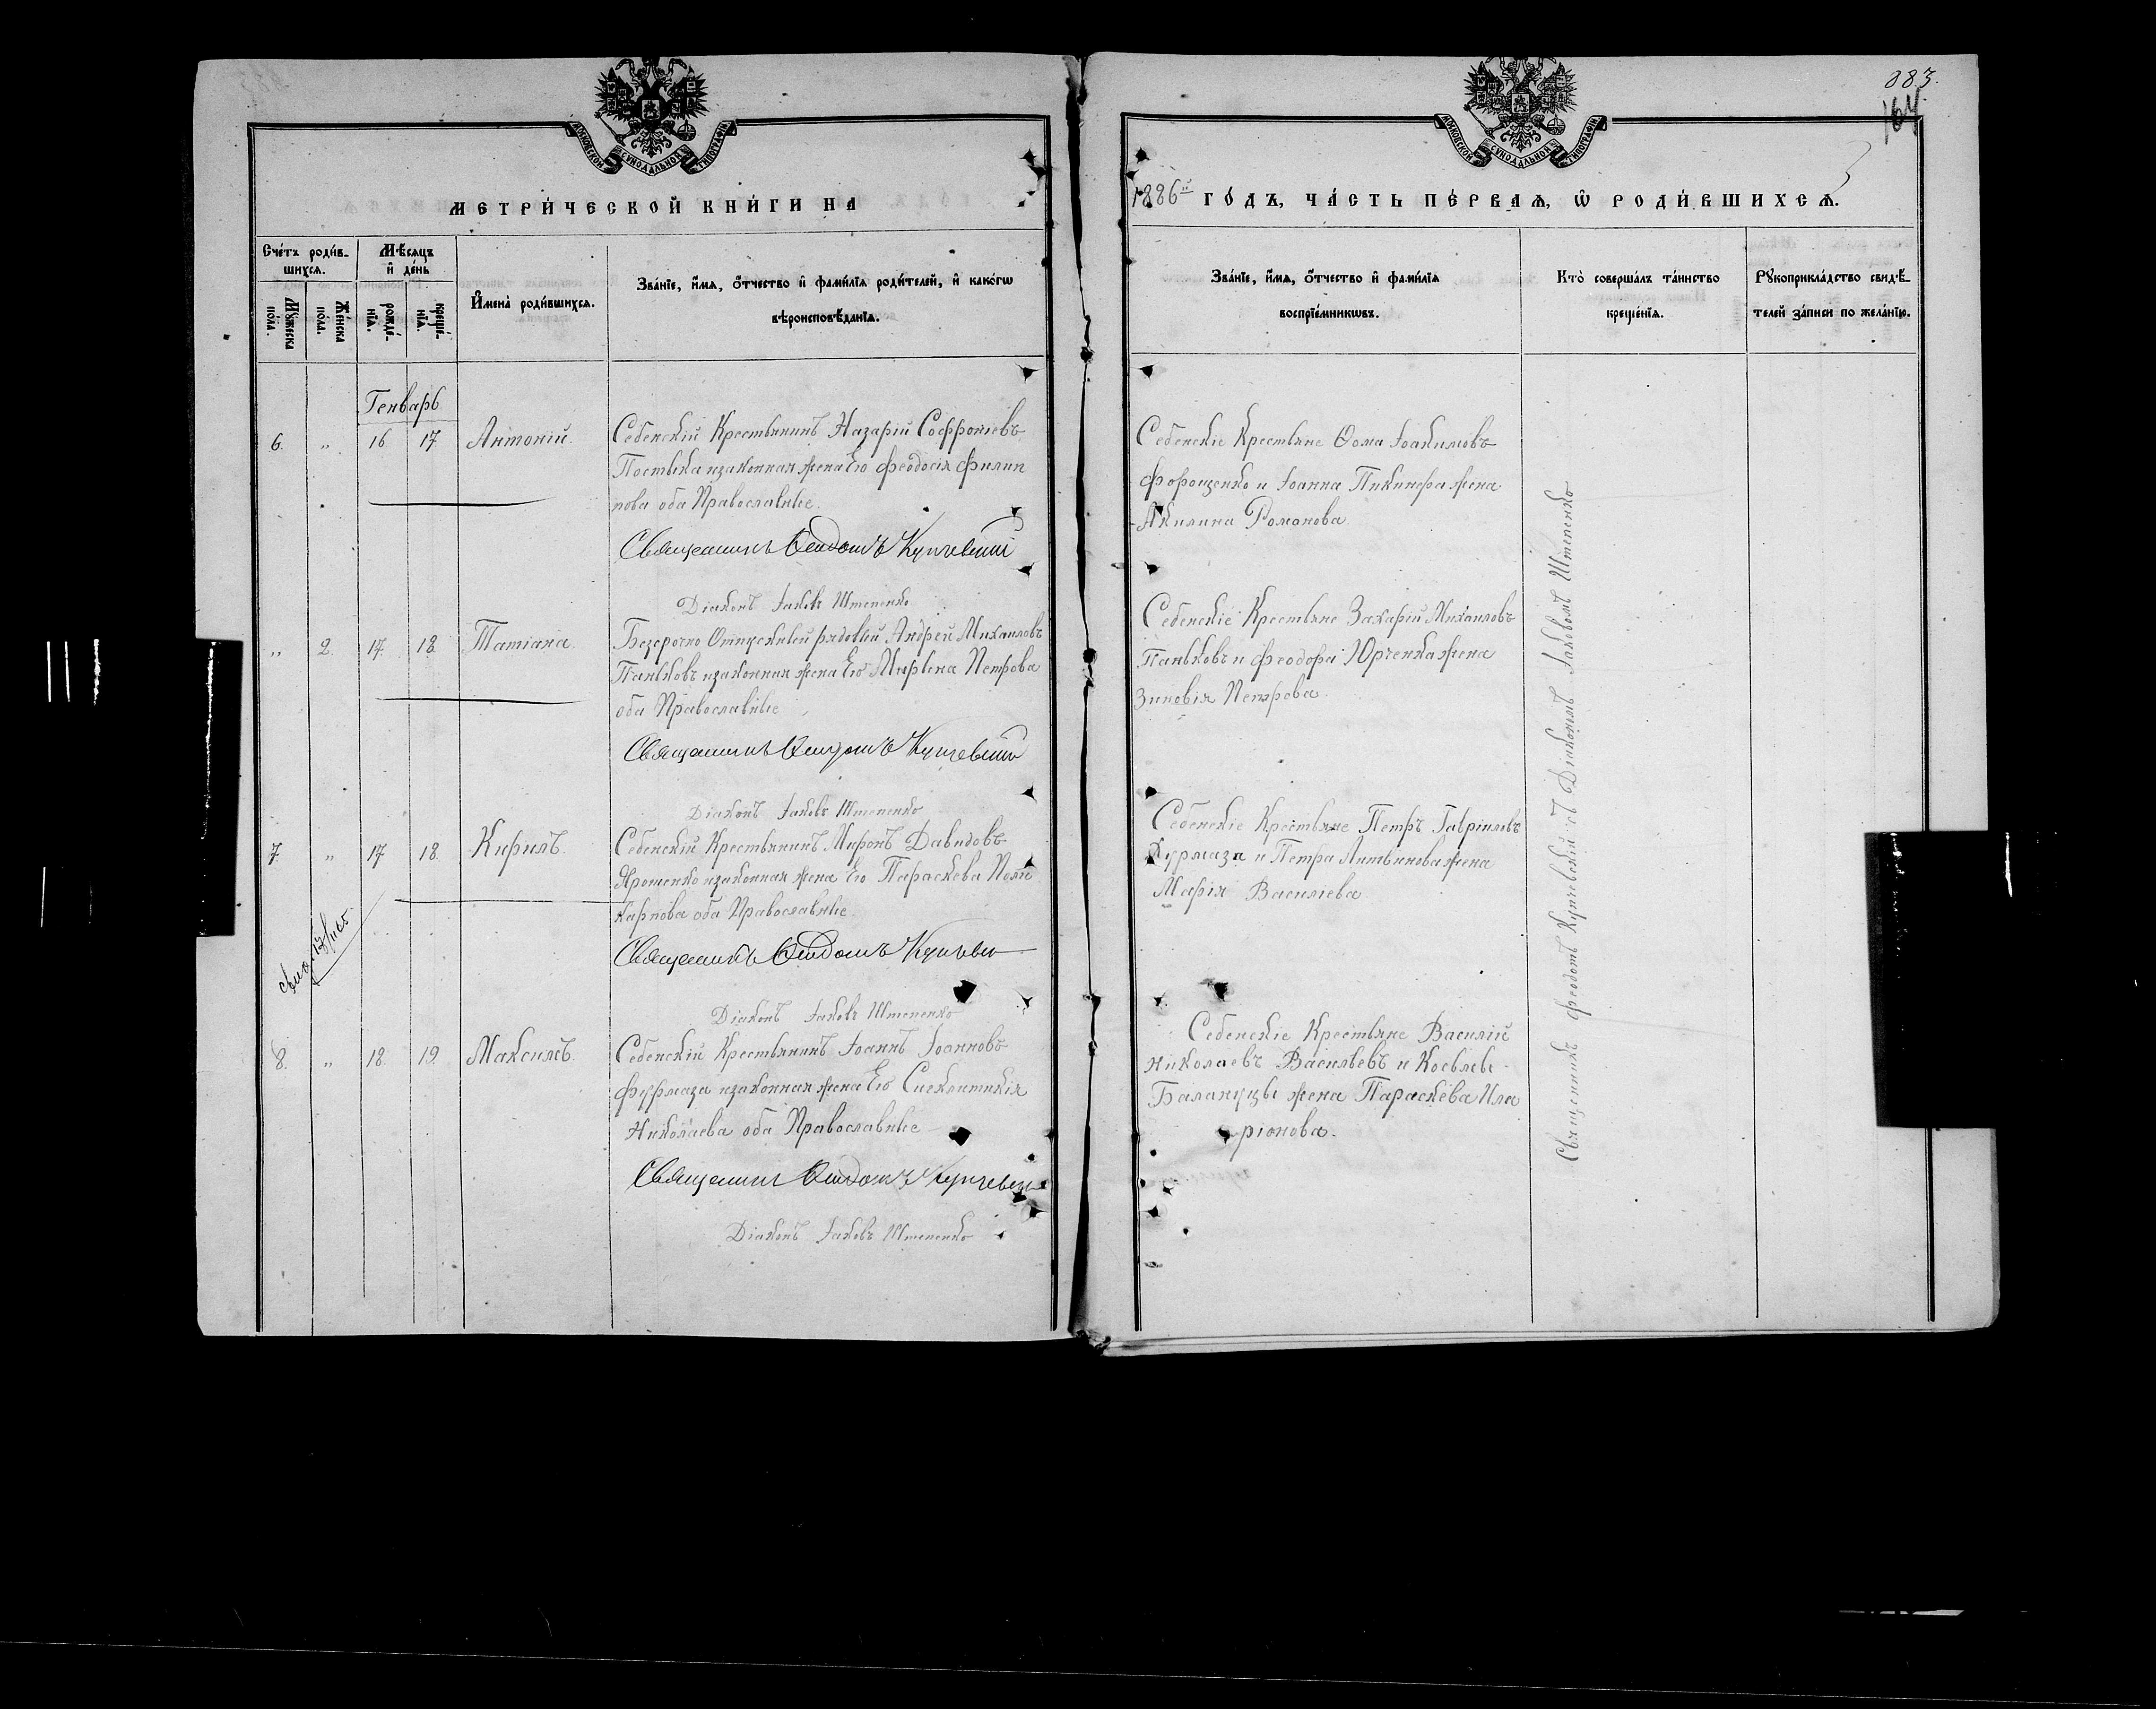 883.
164
МОСКОВСКОЙ СѴНОДАЛЬНОЙ ТИПОГРАФІИ
МОСКОВСКОЙ СѴНОДАЛЬНОЙ ТИПОГРАФІИ
МЕТРИ́ЧЕСКОЙ КНИ́ГИ НА
1886й ГО́ДЪ, ЧА́СТЬ ПЕ́РВАѦ, Ѡ҆ РОДИ́ВШИХСѦ.
Сче́тъ роди́в-
шихсѧ.
Мꙋ́жеска
по́ла.
Же́нска
по́ла.
Мѣ́сѧцъ
и҆ де́нь
рожде́-
нїѧ.
креще́-
нїѧ.
И҆мена̀ роди́вшихсѧ.
Зва́нїе, и҆́мѧ, ѻ҆́тчество и҆ фами́лїѧ роди́телей, и҆ како́гѡ
вѣроисповѣ́данїѧ.
Зва́нїе, и҆́мѧ, ѻ҆́тчество и҆ фами́лїѧ
воспрїе́мникѡвъ.
Кто̀ соверша́лъ та́инство
креще́нїѧ.
Рꙋкоприкла́дство свидѣ́-
телей за́писи по жела́нїю.
Генварь
6. " 16 17 Антоній.
Себенскій Крестьянинъ Назарій Софроніевъ
Постыка и законная жена Его Феодосія Филип
пова оба Православные.
Священникъ Феодотъ Купчевскій
Діаконъ Іаковъ Штепенко
Себенскіе Крестьяне Ѳома Іоакимовъ
Форощенко и Іоанна жена
Акилина Романова
" 2. 17. 18. Татіана.
Безсрочно Отпускный рядовый Андрей Михаиловъ
Паньковъ и законная жена Его Петрова
оба Православные
Священникъ Феодотъ Купчевскій
Діаконъ Іаковъ Штепенко
Себенскіе Крестьяне Захарій Михаиловъ
Паньковъ и Феодора Юрченка жена
Зиновія Петрова
7. " 17. 18. Кирилъ.
Себенскій Крестьянинъ Миронъ Давидовъ
Ярошенко и законная жена Его Параскева Поли
карпова оба Православные.
Священникъ Феодотъ
Діаконъ Іаковъ Штепенко
Себенскіе Крестьяне Петръ Гавріиловъ
Фурмаза и Петра Литвинова жена
Марія Василіева
8. " 18. 19. Максимъ.
Себенскій Крестьянинъ Іоаннъ Іоанновъ
Фурмаза и законная жена Его
Николаева оба Православные
Священникъ Феодотъ Купчевскій
Діаконъ Іаковъ Штепенко
Себенскіе Крестьяне Василій
Николаевъ Васильевъ и
жена Параскева Ила
ріонова.
Священникъ Феодотъ Купчевскій съ Діакономъ Іаковомъ Штепенко